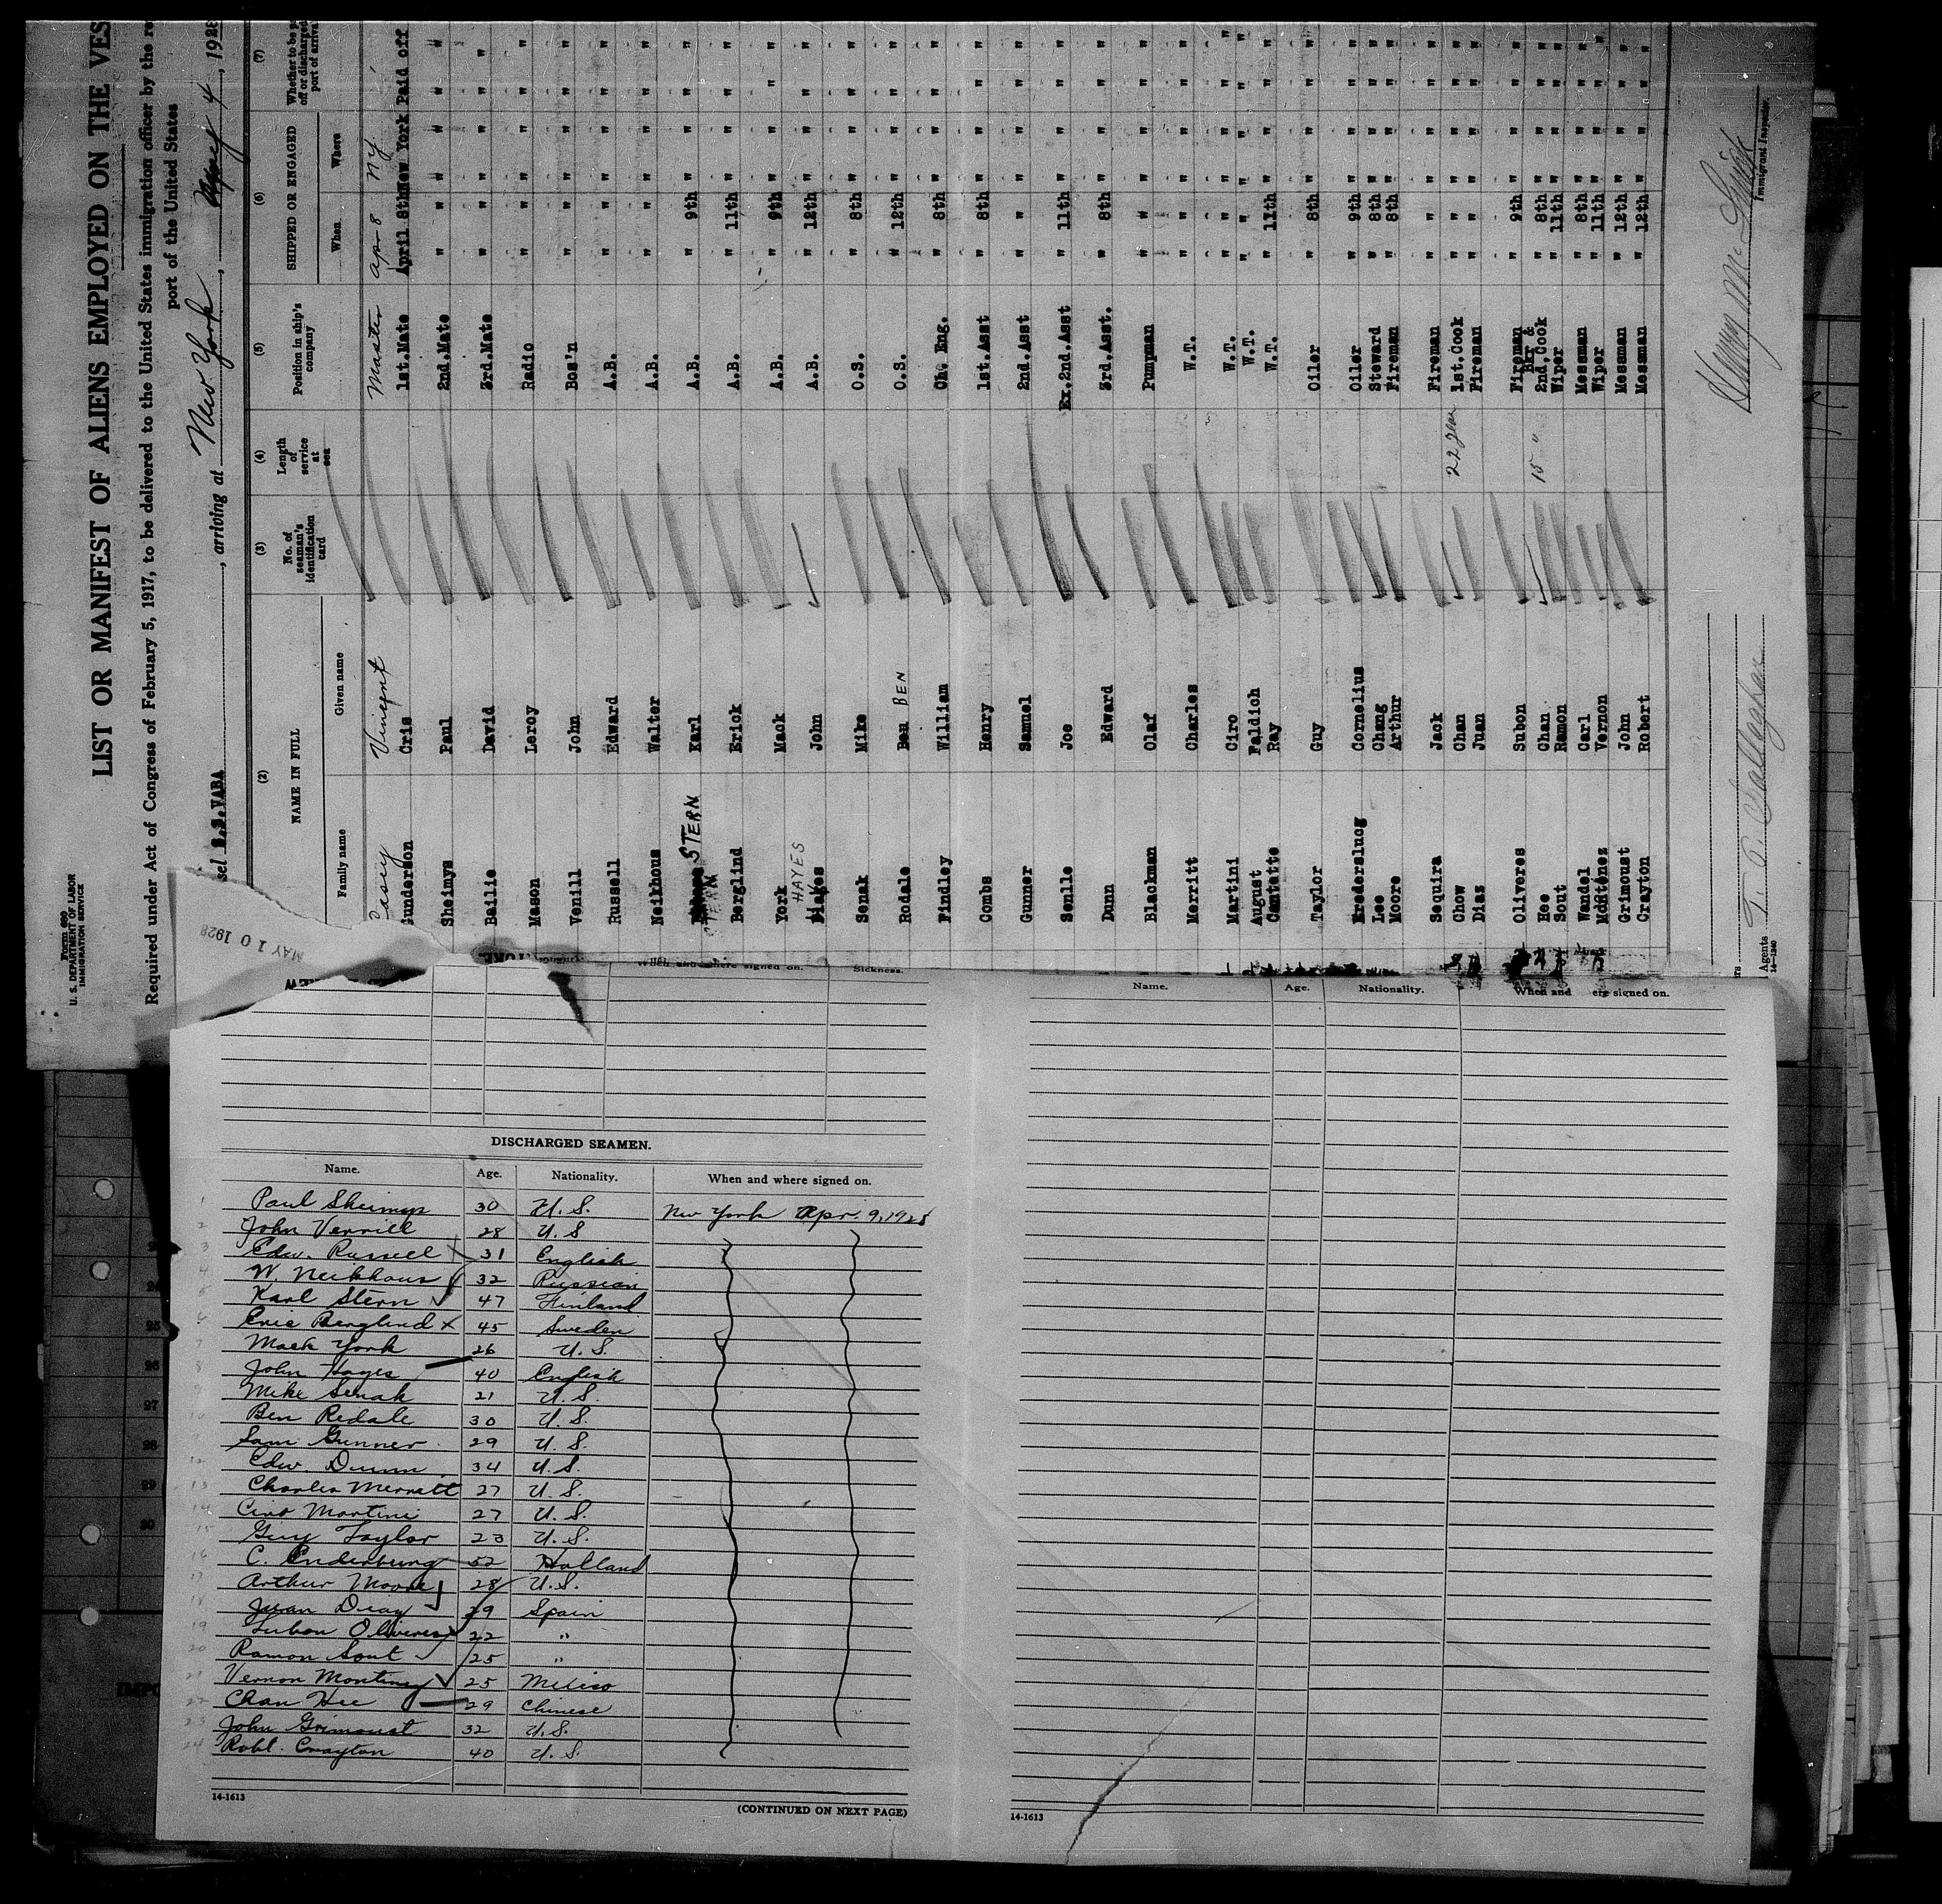 Form 680
U. S. DEPARTMENT OF LABOR
IMMIGRATION SERVICE
LIST OR MANIFEST OF ALIENS EMPLOYED ON THE VES
Required under Act of Congress of February 5, 1917, to be delivered to the United States immigration officer by the re
port of the United States
sel S.S.YABA , arriving at New York , May 4 , 1928
MAY 10 1928
(2) (3) (4) (5) (6) (7)
NAME IN FULL No. of seaman's identification card Length of service at sea Position in ship's company SHIPPED OR ENGAGED Whether to be p off or discharged port of arriva
Family name Given name When Where
Casey Vincent Master Apr 8 NY
Gunderson Cris 1st.Mate April 8th New York Paid off
Sheimys Paul 2nd.Mate " " " " "
Bailie David 3rd.Mate " " " " "
Mason Leroy Radio " " " " "
Venill John Bos'n " " " " "
Russell Edward A.B. " " " " "
Neikhous Walter A.B. " " " " "
STERN Karl A.B. " 9th " " " "
Berglind Erick A.B. " 11th " " " "
York Mack A.B. " 9th " " " "
HAYES John A.B. " 12th " " " "
Senak Mike O.S. " 8th " " " "
Rodale Ben BEN O.S. " 12th " " " "
Findley William Ch. Eng. " 8th " " " "
Combs Henry 1st.Asst " 8th " " " "
Gunner Samuel 2nd.Asst " " " " " "
Senlle Joe Ex.2nd.Asst " 11th " " " "
Dunn Edward 3rd.Asst. " 8th " " " "
Blackman Olaf Pumpman " " " " " "
Merritt Charles W.T. " " " " " "
Martini Ciro W.T. " " " " " "
August Faldich W.T. " " " " " "
Cantatte Ray W.T. " 11th " " " "
Taylor Guy Oiler " 8th " " " "
Erederslucg Cornelius Oiler " 9th " " " "
Lee Chang Steward " 8th " " " "
Moore Arthur Fireman " 8th " " " "
Sequira Jack Fireman " " " " " "
Chow Chan 22 year 1st.Cook " " " " " "
Diaz Juan Fireman " " " " " "
Oliveres Subon Fireman " 9th " " " "
Hee Chan 15 " Bkr & 2nd.Cook " 8th " " " "
Sout Ramon Wiper " 11th " " " "
Wandel Carl Messman " 8th " " " "
Vernon Wiper " 11th " " " "
Grimoust John Messman " 12th " " " "
Crayton Robert Messman " 12th " " " "
Immigrant Inspector.
Agents T. P. Callaghan
14—1240
When and where signed on. Sickness.
Name. Age. Nationality. When and ere signed on.
DISCHARGED SEAMEN.
Name. Age. Nationality. When and where signed on.
1 Paul Sheimys 30 U. S. New York Apr. 9, 1928
2 John Verrill 28 U. S
3 Edw. Russell 31 English
4 W. Neikhous 32 Russian
5 Karl Stern 47 Finland
6 Eric Berglind x 45 Sweden
7 Mack York 26 U. S.
8 John Hayes 40 English
9 Mike Senak 21 U. S.
10 Ben Redale 30 U. S.
11 Sam Gunner 29 U. S.
12 Edw. Dunn 34 U. S.
13 Charles Merratt 27 U. S.
14 Ciro Martini 27 U. S.
15 Guy Taylor 23 U. S.
16 C. Enderburg 52 Holland
17 Arthur Moore 28 U. S.
18 Juan Diaz 29 Spain
19 Subon Oliveres 22 "
20 Ramon Sout 25 "
21 Vernon Montiney 25 Mexico
22 Chan Hee 29 Chinese
23 John Grimoust 32 U. S.
24 Robt. Crayton 40 U. S.
14-1613
(CONTINUED ON NEXT PAGE)
14-1613
24
25
26
27
28
29
30